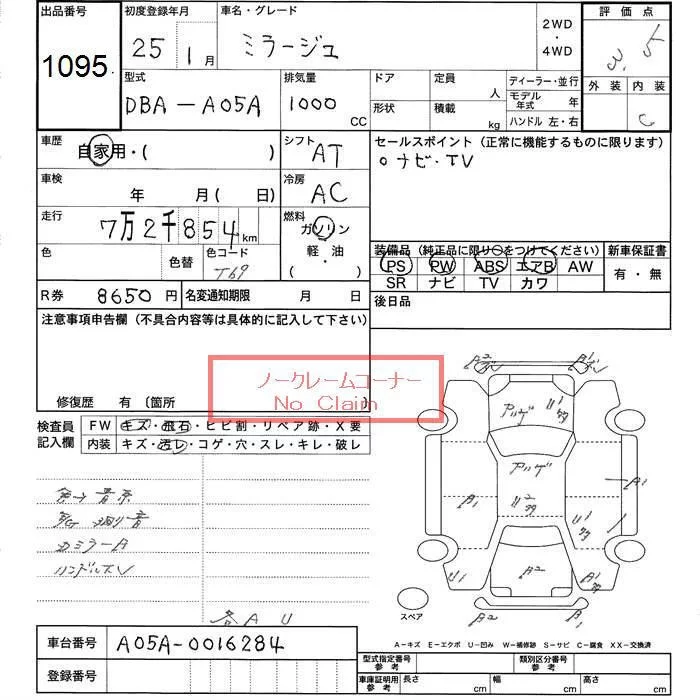 出品番号 初度登録年月 車名・グレード 2WD・4WD 評価点
1095 25 1月 ミラージュ 3.5
型式 排気量 ドア 定員 人 ディーラー・並行 外装 内装
DBA-A05A 1000 CC 形状 積載 kg モデル年式 年 C
ハンドル 左・右
車歴 自家用・( ) シフト AT セールスポイント (正常に機能するものに限ります)
○ナビ・TV
車検 年 月( 日) 冷房 AC
走行 7万2千854km 燃料 ガソリン・軽油 ( )
色 色替 色コード T69
装備品 (純正品に限り○をつけてください) 新車保証書
PS PW ABS エアB AW 有・無
SR ナビ TV カワ
R券 8650円 名変通知期限 月 日 後日品
注意事項申告欄 (不具合内容等は具体的に記入して下さい)
ノークレームコーナー
No Claim
修復歴 有 〔箇所
検査員記入欄 FW キズ・飛石・ヒビ割・リペア跡・X要
内装 キズ・汚レ・コゲ・穴・スレ・キレ・破レ
DミラーA
ハンドルスレ
各AU
A1
B1
U1
A2
B2
B1
スペア
A-キズ E-エクボ U-凹み W-補修跡 S-サビ C-腐食 XX-交換済
車台番号 A05A-0016284
登録番号
型式指定番号参考 類別区分番号参考
車庫証明用参考 長さ cm 幅 cm 高さ cm